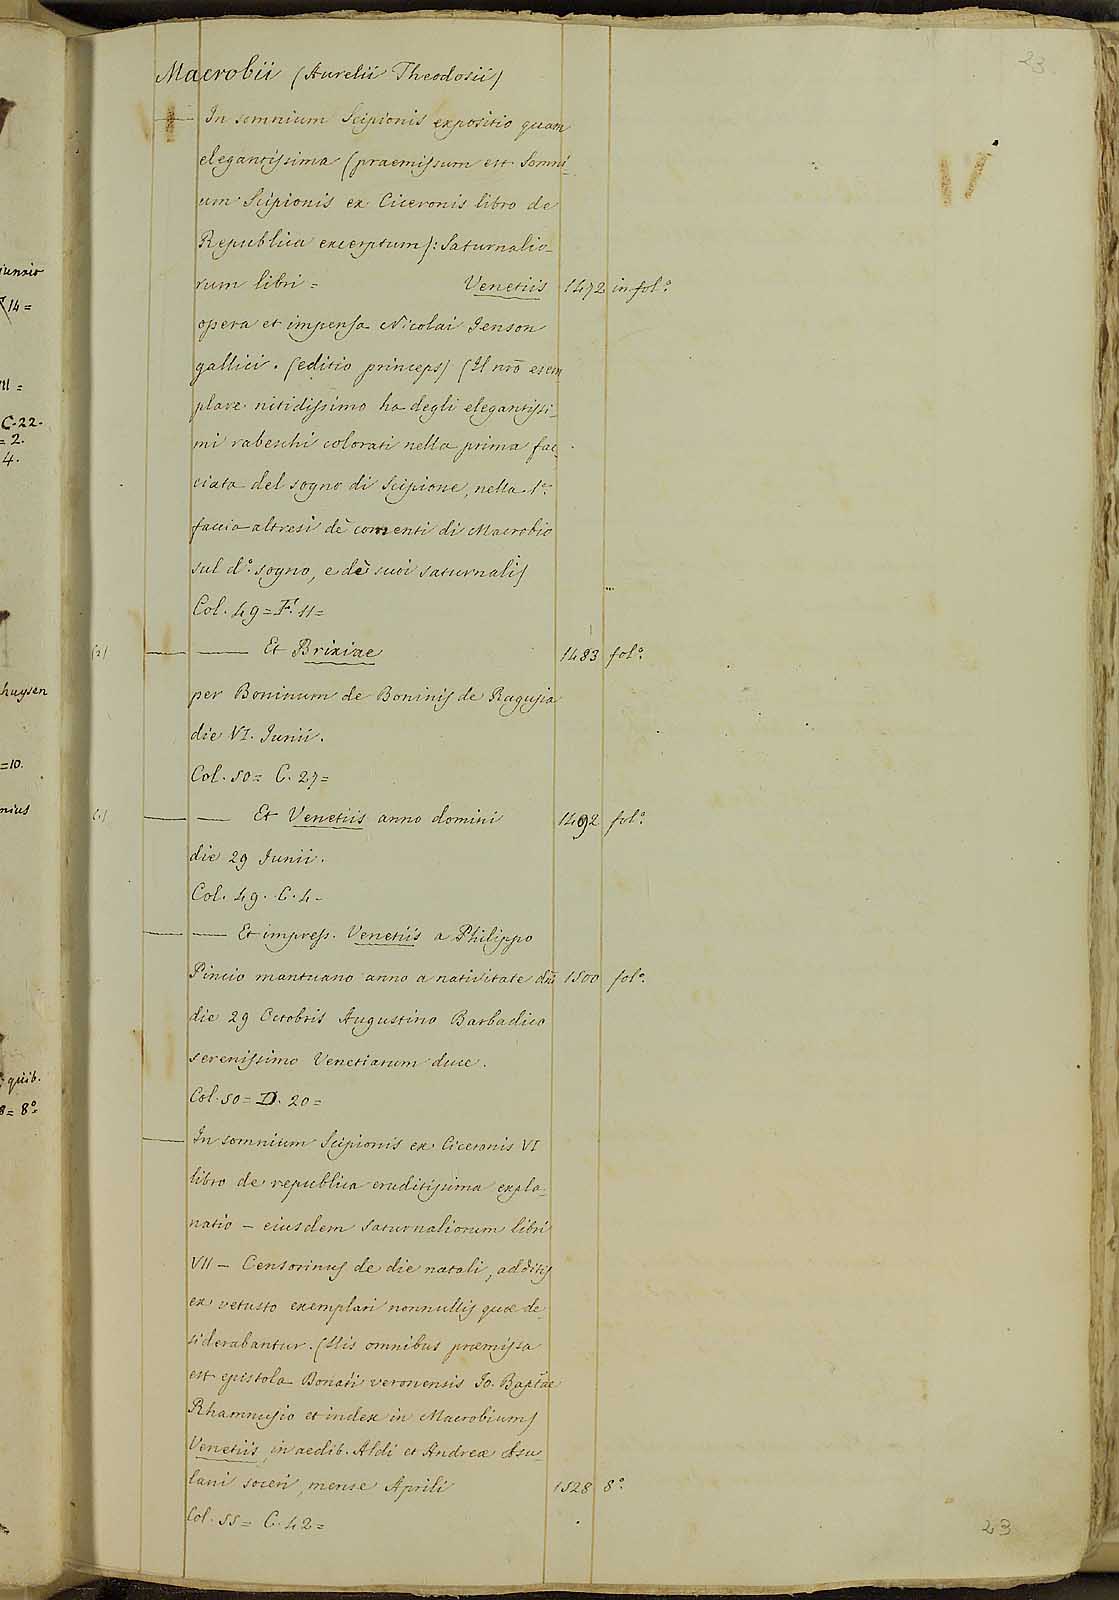 23
Macrobii (Aurelii Theodosii)
In somnium Scipionis expositio quam
elegantissima (praemissum est Somni-
um Scipionis ex Ciceronis libro de
Republica excerptum): Saturnalio-
rum libri = Venetiis 1472 in fol.º
opera et impensa Nicolai Jenson
gallici. (editio princeps) (Il nrõ esem
plare nitidissimo ha degli elegantissi-
mi rabeschi colorati nella prima fac-
ciata del sogno di Scipione, nella 1ª
faccia altresi dè comenti di Macrobio
sul d.º sogno, e dè suoi saturnali)
Col. 49 = F. 11 =
(2) — Et Brixiae 1483 fol.º
per Boninum de Boninis de Ragusia
die VI. Junii.
Col. 50 = C. 27 =
— Et Venetiis anno domini 1492 fol.º
die 29 Junii.
Col. 49. C. 4 -
— Et impress. Venetiis a Philippo
Pincio mantuano anno a nativitate dni 1500 fol.º
die 29 Octobris Augustino Barbadico
serenissimo Venetiarum duce.
Col. 50 = D. 20 =
— In somnium Scipionis ex Ciceronis VI
libro de republica eruditissima expla-
natio — eiusdem saturnaliorum libri
VII — Censorinus de die natali, additis
ex vetusto exemplari nonnullis quae de-
siderabantur. (His omnibus praemissa
est epistola Donati veronensis Jo. Baptae
Rhamnusio et index in Macrobium)
Venetiis, in aedib. Aldi et Andreae Asu-
lani soceri, mense Aprili 1528 8.º
Col. 55 = C. 42 =
23
junsio
14 =
C. 22.
= 2.
4.
huysen
= 10.
nius
quib.
8 = 8.º